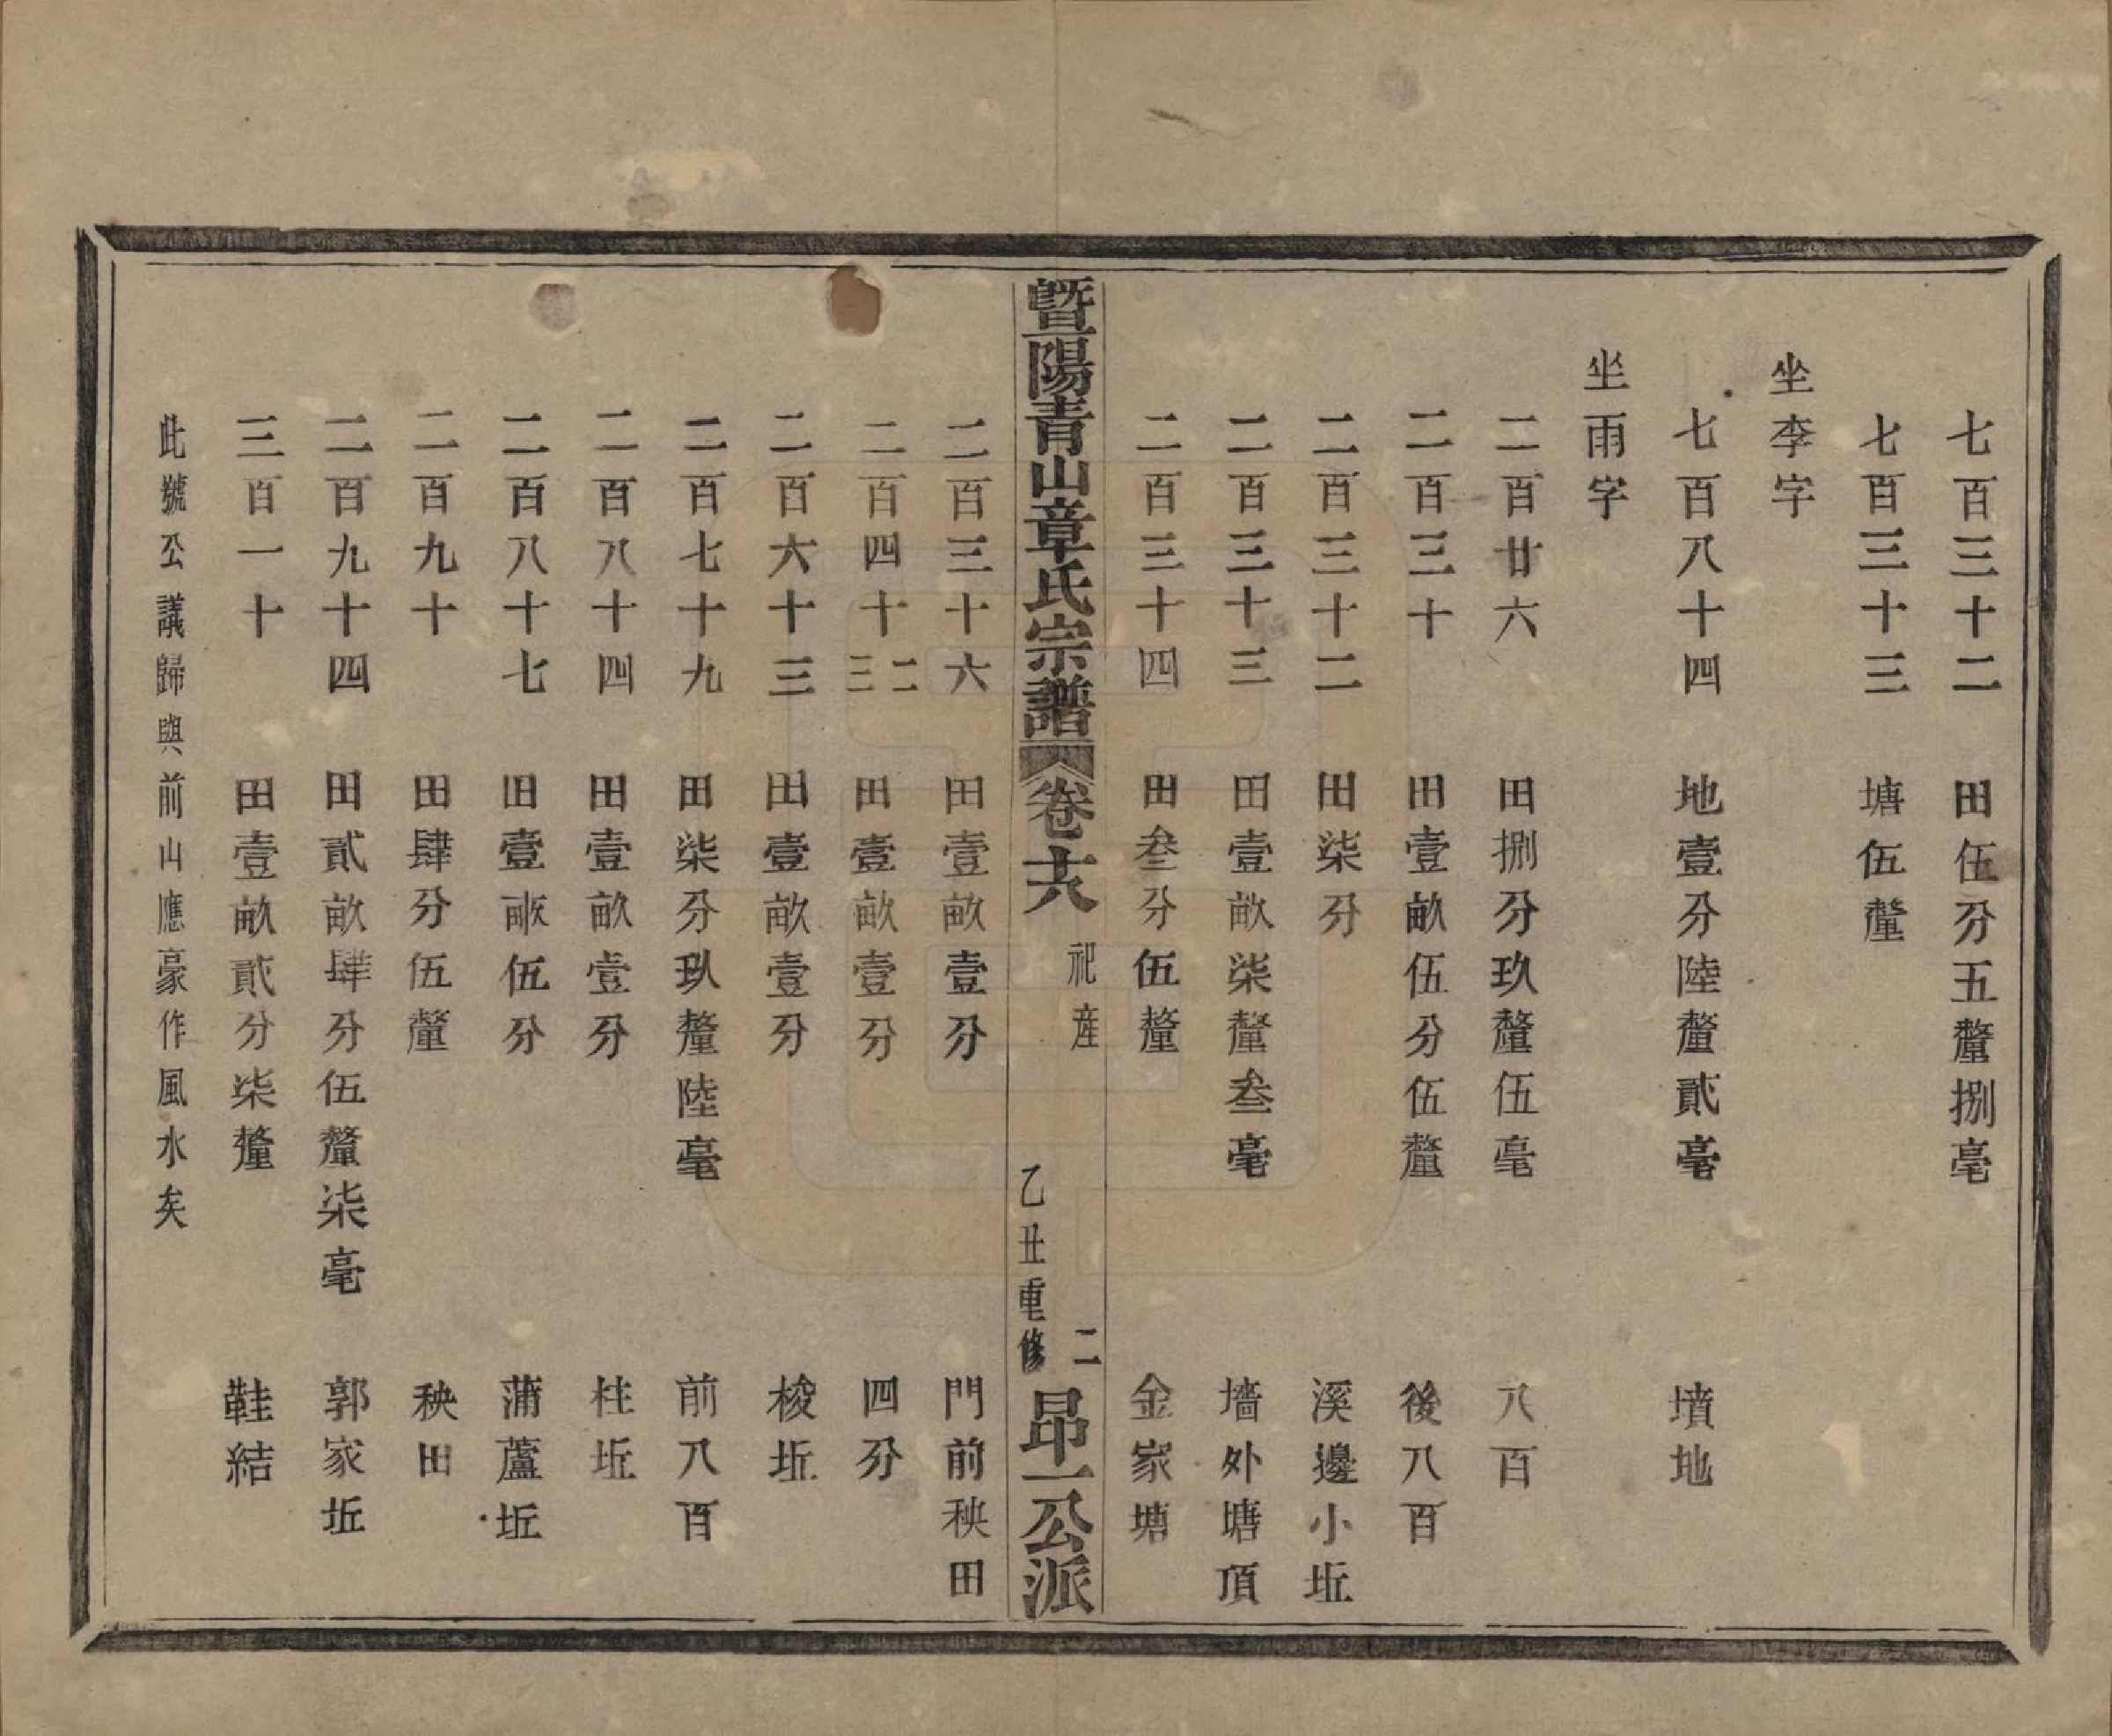 七百三十二　田伍分五釐捌毫
七百三十三　塘伍釐
坐李字
七百八十四　地壹分陸釐貳毫　墳地
坐雨字
二百廿六　田捌分玖釐伍毫　八百
二百三十　田壹畝伍分伍釐　後八百
二百三十二　田柒分　溪邊小坵
二百三十三　田壹畝柒釐叁毫　墻外塘頂
二百三十四　田叁分伍釐　金家塘
暨陽青山章氏宗譜　卷十六　祀産　二　乙丑重修　昂一公派
二百三十六　田壹畝壹分　門前秧田
二百四十二三　田壹畝壹分　四分
二百六十三　田壹畝壹分　梭坵
二百七十九　田柒分玖釐陸毫　前八百
二百八十四　田壹畝壹分　柱坵
二百八十七　田壹畝伍分　蒲蘆坵
二百九十　田肆分伍釐　秧田
二百九十四　田貳畝肆分伍釐柒毫　郭家坵
三百一十　田壹畝貳分柒釐　鞋結
此號公議歸與前山應豪作風水矣